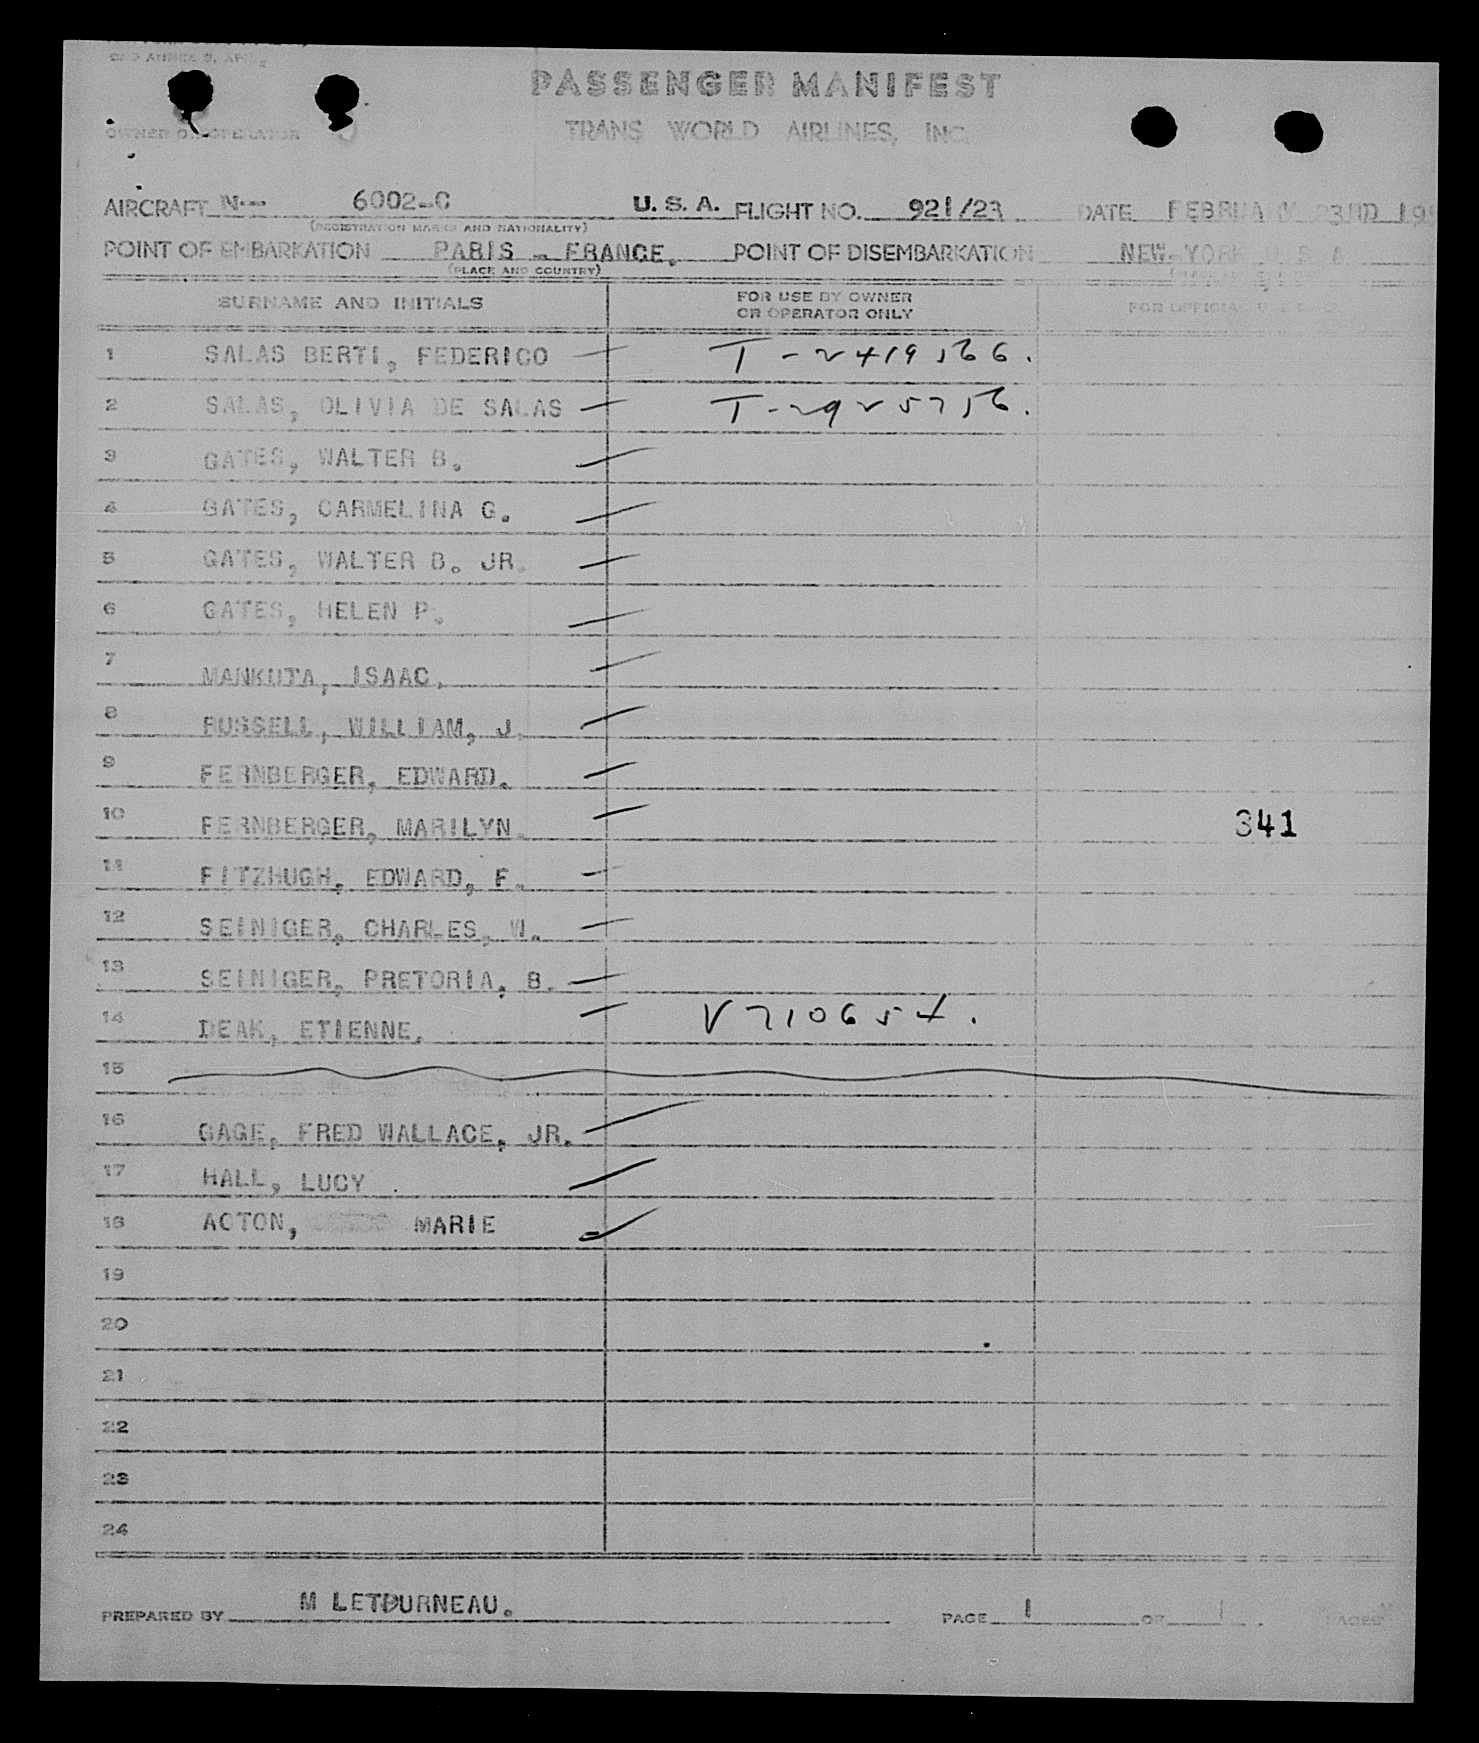 PASSENGER MANIFEST
OWNER OR OPERATOR TRANS WORLD AIRLINES, INC.
AIRCRAFT N-- 6002-C U. S. A. FLIGHT NO. 921/23 DATE FEBRUARY 23RD 19
(REGISTRATION MARKS AND NATIONALITY)
POINT OF EMBARKATION PARIS - FRANCE. POINT OF DISEMBARKATION NEW-YORK U. S. A
(PLACE AND COUNTRY)
SURNAME AND INITIALS FOR USE BY OWNER OR OPERATOR ONLY FOR OFFICIAL USE ONLY
1 SALAS BERTI, FEDERICO T-2419566.
2 SALAS, OLIVIA DE SALAS T-2925756.
3 GATES, WALTER B.
4 GATES, CARMELINA G.
5 GATES, WALTER B. JR.
6 GATES, HELEN P.
7 MANKUTA, ISAAC.
8 RUSSELL, WILLIAM, J.
9 FERNBERGER, EDWARD.
10 FERNBERGER, MARILYN. 341
11 FITZHUGH, EDWARD, F.
12 SEINIGER, CHARLES, W.
13 SEINIGER, PRETORIA, B.
14 DEAK, ETIENNE. V710654.
15
16 GAGE, FRED WALLACE, JR.
17 HALL, LUCY .
18 ACTON, MARIE
19
20
21
22
23
24
PREPARED BY M LETOURNEAU. PAGE 1 OF 1 PAGES